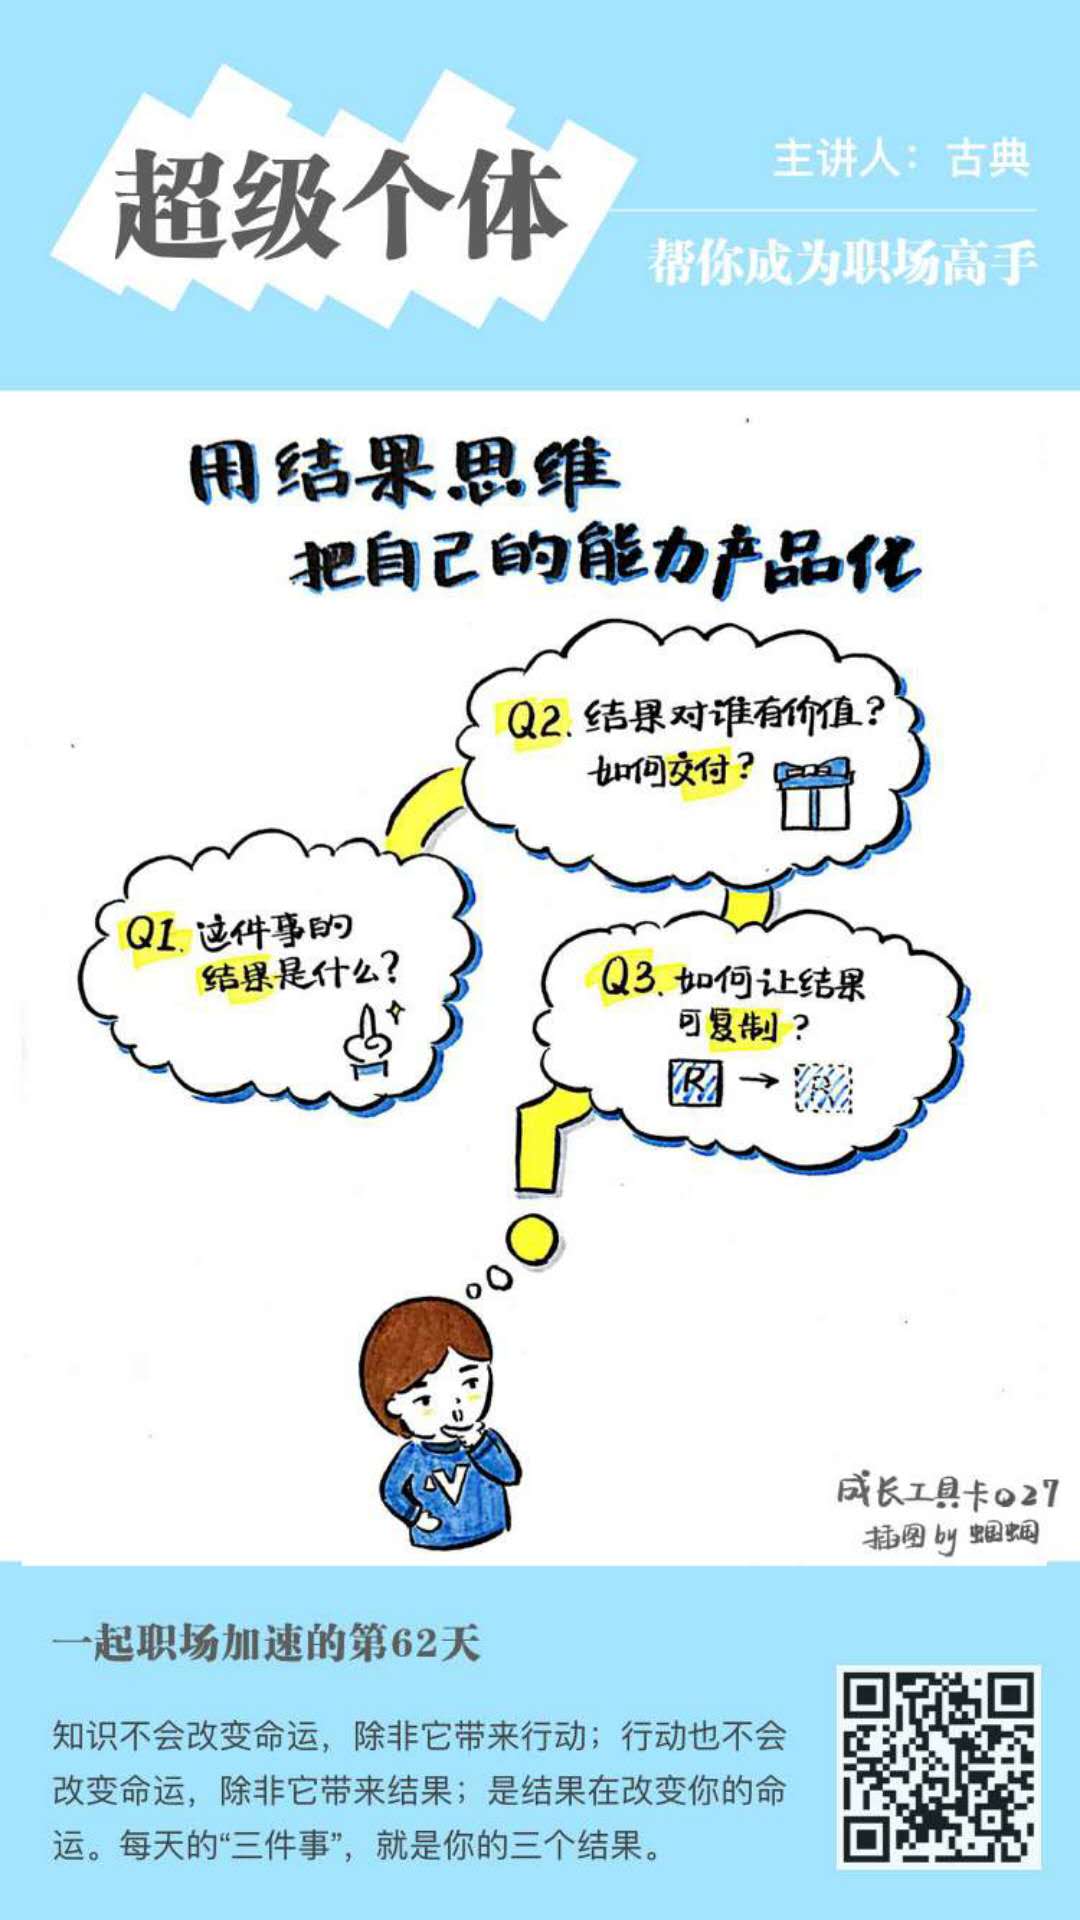 超级个体
主讲人：古典
帮你成为职场高手
用结果思维
把自己的能力产品化
Q2.结果对谁有价值？
如何交付？
Q1.这件事的
结果是什么？
Q3.如何让结果
可复制？
R → R
V
成长工具卡027
插图 by 蝈蝈
一起职场加速的第62天
知识不会改变命运，除非它带来行动；行动也不会
改变命运，除非它带来结果；是结果在改变你的命
运。每天的“三件事”，就是你的三个结果。